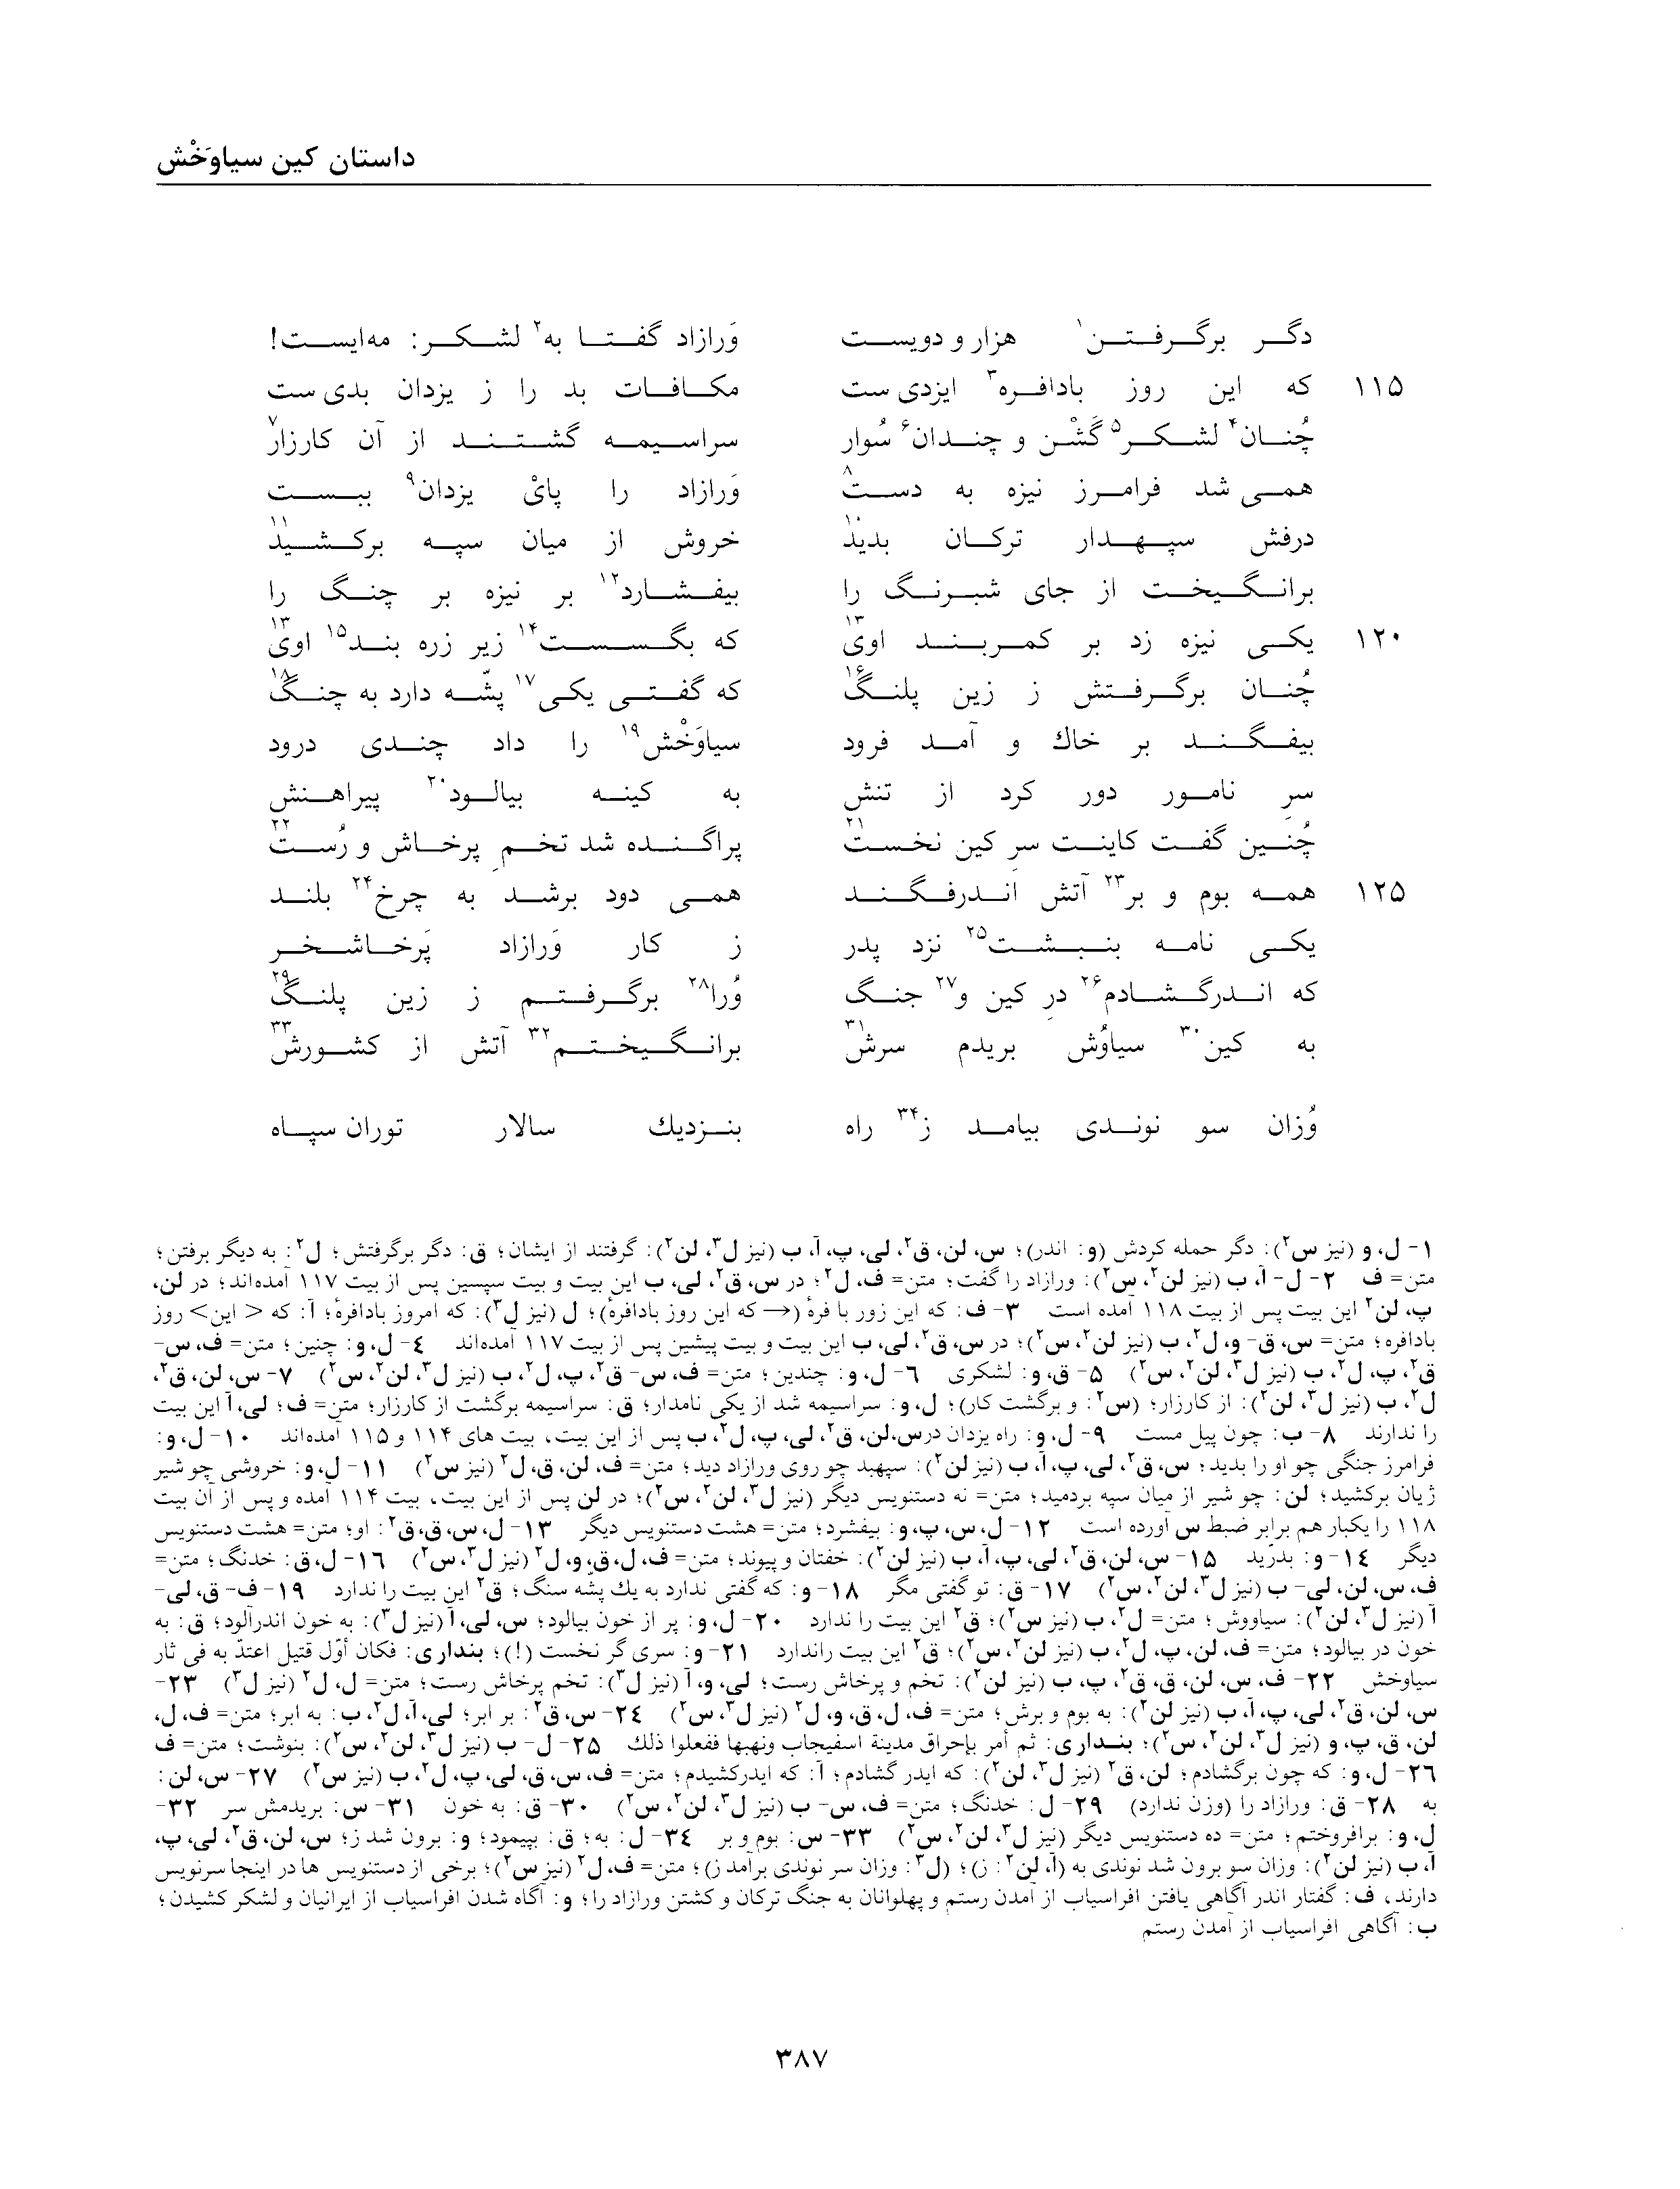 داستان کین سیاوَخْش
دگر برگرفتن۱ هزار و دویست وَرازاد گفتا به۲ لشکر: مه‌ایست!
۱۱۵ که این روز بادافره۳ ایزدی ست مکافات بد را ز یزدان بدی ست
چُنان۴ لشکر۵ گَشْن و چندان۶ سُوار سراسیمه گشتند از آن کارزار۷
همی شد فرامرز نیزه به دست۸ وَرازاد را پایْ یزدان۹ ببست
درفش سپهدار ترکان بدید۱۰ خروش از میان سپه برکشید۱۱
برانگیخت از جای شبرنگ را بیفشارد۱۲ بر نیزه بر چنگ را
۱۲۰ یکی نیزه زد بر کمربند اوی۱۳ که بگسست۱۴ زیر زره بند۱۵ اوی۱۳
چُنان برگرفتش ز زین پلنگ۱۶ که گفتی یکی۱۷ پشّه دارد به چنگ۱۸
بیفگند بر خاك و آمد فرود سیاوَخْش۱۹ را داد چندی درود
سرِ نامور دور کرد از تنش به کینه بیالود۲۰ پیراهنش
چُنین گفت کاینت سرِ کین نخست۲۱ پراگنده شد تخمِ پرخاش و رُست۲۲
۱۲۵ همه بوم و بر۲۳ آتش اندرفگند همی دود برشد به چرخ۲۴ بلند
یکی نامه بنبشت۲۵ نزد پدر ز کار وَرازاد پَرخاشخر
که اندرگشادم۲۶ درِ کین و۲۷ جنگ وُرا۲۸ برگرفتم ز زین پلنگ۲۹
به کین۳۰ سیاوُش بریدم سرش۳۱ برانگیختم۳۲ آتش از کشورش۳۳
وُزان سو نوندی بیامد ز۳۴ راه بنزدیك سالار توران سپاه
۱- ل، و (نیز س۲): دگر حمله کردش (و: اندر)؛ س، لن، ق۲، لی، پ، آ، ب (نیز ل۳، لن۲): گرفتند از ایشان؛ ق: دگر برگرفتش؛ ل۲: به دیگر برفتن؛
متن= ف ۲- ل- آ، ب (نیز لن۲، س۲): ورازاد را گفت؛ متن= ف، ل۲؛ در س، ق۲، لی، ب این بیت و بیت سپسین پس از بیت ۱۱۷ آمده‌اند؛ در لن،
پ، لن۲ این بیت پس از بیت ۱۱۸ آمده است ۳- ف: که این زور با فرهٔ (→ که این روز بادافرهٔ)؛ ل (نیز ل۳): که امروز بادافرهٔ؛ آ: که < این> روز
بادافره؛ متن= س، ق- و، ل۲، ب (نیز لن۲، س۲)؛ در س، ق۲، لی، ب این بیت و بیت پیشین پس از بیت ۱۱۷ آمده‌اند ۴- ل، و: چنین؛ متن= ف، س-
ق۲، پ، ل۲، ب (نیز ل۳، لن۲، س۲) ۵- ق، و: لشکری ۶- ل، و: چندین؛ متن= ف، س- ق۲، پ، ل۲، ب (نیز ل۳، لن۲، س۲) ۷- س، لن، ق۲،
ل۲، ب (نیز ل۳، لن۲): از کارزار؛ (س۲: و برگشت کار)؛ ل، و: سراسیمه شد از یکی نامدار؛ ق: سراسیمه برگشت از کارزار؛ متن= ف؛ لی، آ این بیت
را ندارند ۸- ب: چون پیل مست ۹- ل، و: راه یزدان درس، لن، ق۲، لی، پ، ل۲، ب پس از این بیت، بیت های ۱۱۴ و ۱۱۵ آمده‌اند ۱۰- ل، و:
فرامرز جنگی چو او را بدید؛ س، ق۲، لی، پ، آ، ب (نیز لن۲): سپهبد چو روی ورازاد دید؛ متن= ف، لن، ق، ل۲ (نیز س۲) ۱۱- ل، و: خروشی چو شیر
ژیان برکشید؛ لن: چو شیر از میان سپه بردمید؛ متن= نه دستنویس دیگر (نیز ل۳، لن۲، س۲)؛ در لن پس از این بیت، بیت ۱۱۴ آمده و پس از آن بیت
۱۱۸ را یکبار هم برابر ضبط س آورده است ۱۲- ل، س، پ، و: بیفشرد؛ متن= هشت دستنویس دیگر ۱۳- ل، س، ق، ق۲: او؛ متن= هشت دستنویس
دیگر ۱۴- و: بدرّید ۱۵- س، لن، ق۲، لی، پ، آ، ب (نیز لن۲): خفتان و پیوند؛ متن= ف، ل، ق، و، ل۲ (نیز ل۳، س۲) ۱۶- ل، ق: خدنگ؛ متن=
ف، س، لن، لی- ب (نیز ل۳، لن۲، س۲) ۱۷- ق: تو گفتی مگر ۱۸- و: که گفتی ندارد به یك پشّه سنگ؛ ق۲ این بیت را ندارد ۱۹- ف- ق، لی-
آ (نیز ل۳، لن۲): سیاووش؛ متن= ل۲، ب (نیز س۲)؛ ق۲ این بیت را ندارد ۲۰- ل، و: پر از خون بیالود؛ س، لی، آ (نیز ل۳): به خون اندرآلود؛ ق: به
خون در بیالود؛ متن= ف، لن، پ، ل۲، ب (نیز لن۲، س۲)؛ ق۲ این بیت راندارد ۲۱- و: سری گر نخست (!)؛ بنداری: فکان أوّل قتیل اعتدّ به فی ثار
سیاوخش ۲۲- ف، س، لن، ق، ق۲، پ، ب (نیز لن۲): تخم و پرخاش رست؛ لی، و، آ (نیز ل۳): تخم پرخاش رست؛ متن= ل، ل۲ (نیز ل۳) ۲۳-
س، لن، ق۲، لی، پ، آ، ب (نیز لن۲): به بوم و برش؛ متن= ف، ل، ق، و، ل۲ (نیز ل۳، س۲) ۲۴- س، ق۲: بر ابر؛ لی، آ، ل۲، ب: به ابر؛ متن= ف، ل،
لن، ق، پ، و (نیز ل۳، لن۲، س۲)؛ بنداری: ثم أمر بإحراق مدینة اسفیجاب ونهبها ففعلوا ذلك ۲۵- ل- ب (نیز ل۳، لن۲، س۲): بنوشت؛ متن= ف
۲۶- ل، و: که چون برگشادم؛ لن، ق۲ (نیز ل۳، لن۲): که ایدر گشادم؛ آ: که ایدرکشیدم؛ متن= ف، س، ق، لی، پ، ل۲، ب (نیز س۲) ۲۷- س، لن:
به ۲۸- ق: ورازاد را (وزن ندارد) ۲۹- ل: خدنگ؛ متن= ف، س- ب (نیز ل۳، لن۲، س۲) ۳۰- ق: به خون ۳۱- س: بریدمش سر ۳۲-
ل، و: برافروختم؛ متن= ده دستنویس دیگر (نیز ل۳، لن۲، س۲) ۳۳- س: بوم و بر ۳۴- ل: به؛ ق: بپیمود؛ و: برون شد ز؛ س، لن، ق۲، لی، پ،
آ، ب (نیز لن۲): وزان سو برون شد نوندی به (آ، لن۲: ز)؛ (ل۳: وزان سر نوندی برآمد ز)؛ متن= ف، ل۲ (نیز س۲)؛ برخی از دستنویس ها در اینجا سرنویس
دارند، ف: گفتار اندر آگاهی یافتن افراسیاب از آمدن رستم و پهلوانان به جنگ ترکان و کشتن ورازاد را؛ و: آگاه شدن افراسیاب از ایرانیان و لشکر کشیدن؛
ب: آگاهی افراسیاب از آمدن رستم
۳۸۷